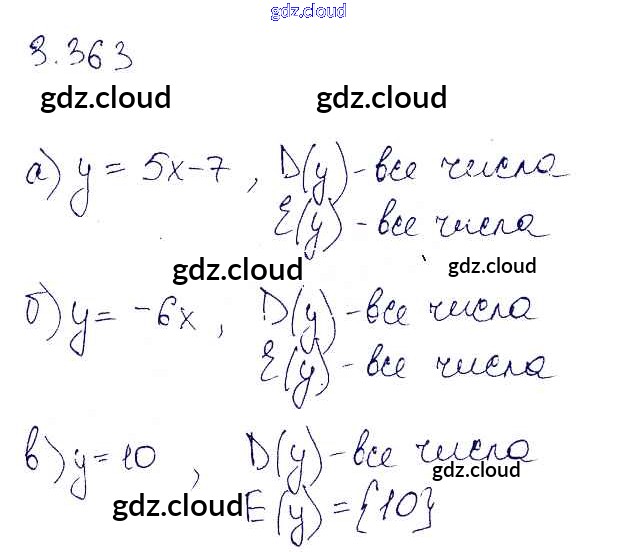 gdz.cloud
3.363
gdz.cloud gdz.cloud
а) y = 5x-7, D(y) - все числа
E(y) - все числа
gdz.cloud gdz.cloud
б) y = -6x, D(y) - все числа
E(y) - все числа
в) y = 10, D(y) - все числа
gdz.cloud
gdz.cloud E(y) = {10}